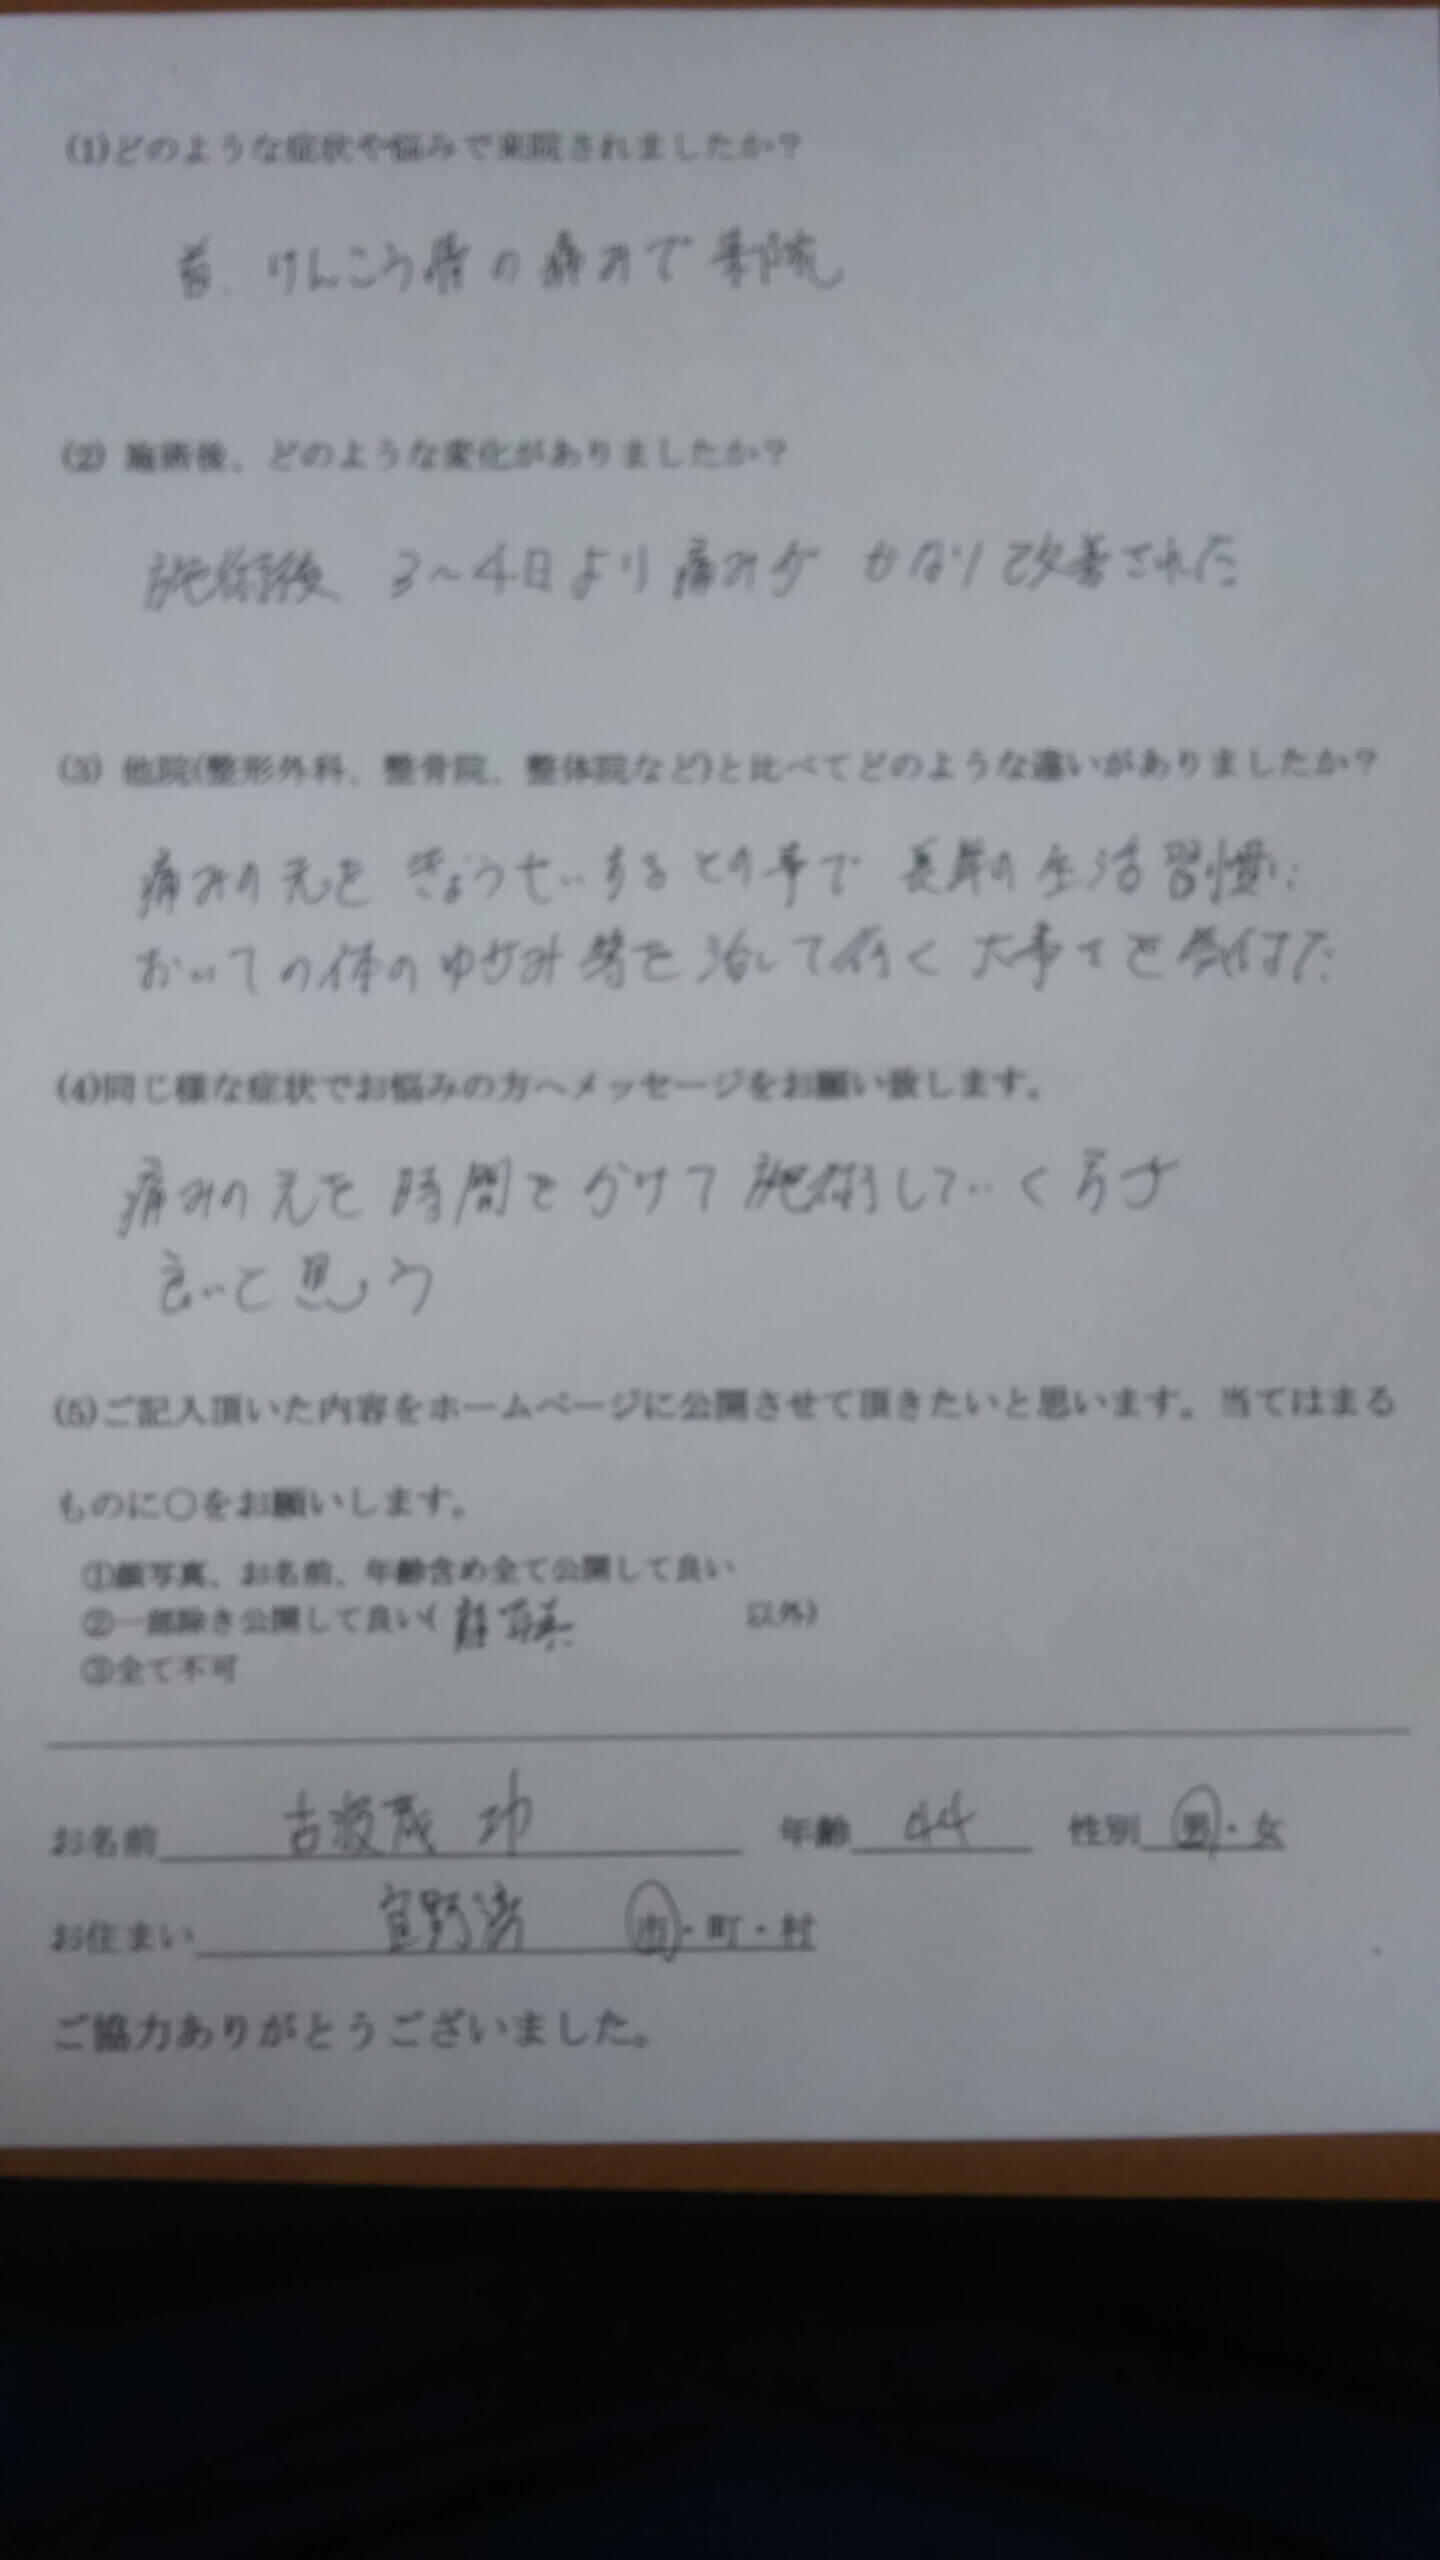 (1)どのような症状や悩みで来院されましたか？
首、けんこう骨の痛みで来院
(2) 施術後、どのような変化がありましたか？
施術後 3～4日より痛みが かなり改善された
(3) 他院(整形外科、整骨院、整体院など)と比べてどのような違いがありましたか？
痛みの元を きょうせいするとの事で 長年の生活習慣に
おいての体のゆがみ等を治して行く大事さを気付けた
(4)同じ様な症状でお悩みの方へメッセージをお願い致します。
痛みの元を時間をかけて施術していく方が
良いと思う
(5)ご記入頂いた内容をホームページに公開させて頂きたいと思います。当てはまる
ものに○をお願いします。
①顔写真、お名前、年齢含め全て公開して良い
②一部除き公開して良い(顔写真 以外)
③全て不可
お名前 古波蔵 功 年齢 44 性別 男・女
お住まい 宜野湾 市・町・村
ご協力ありがとうございました。